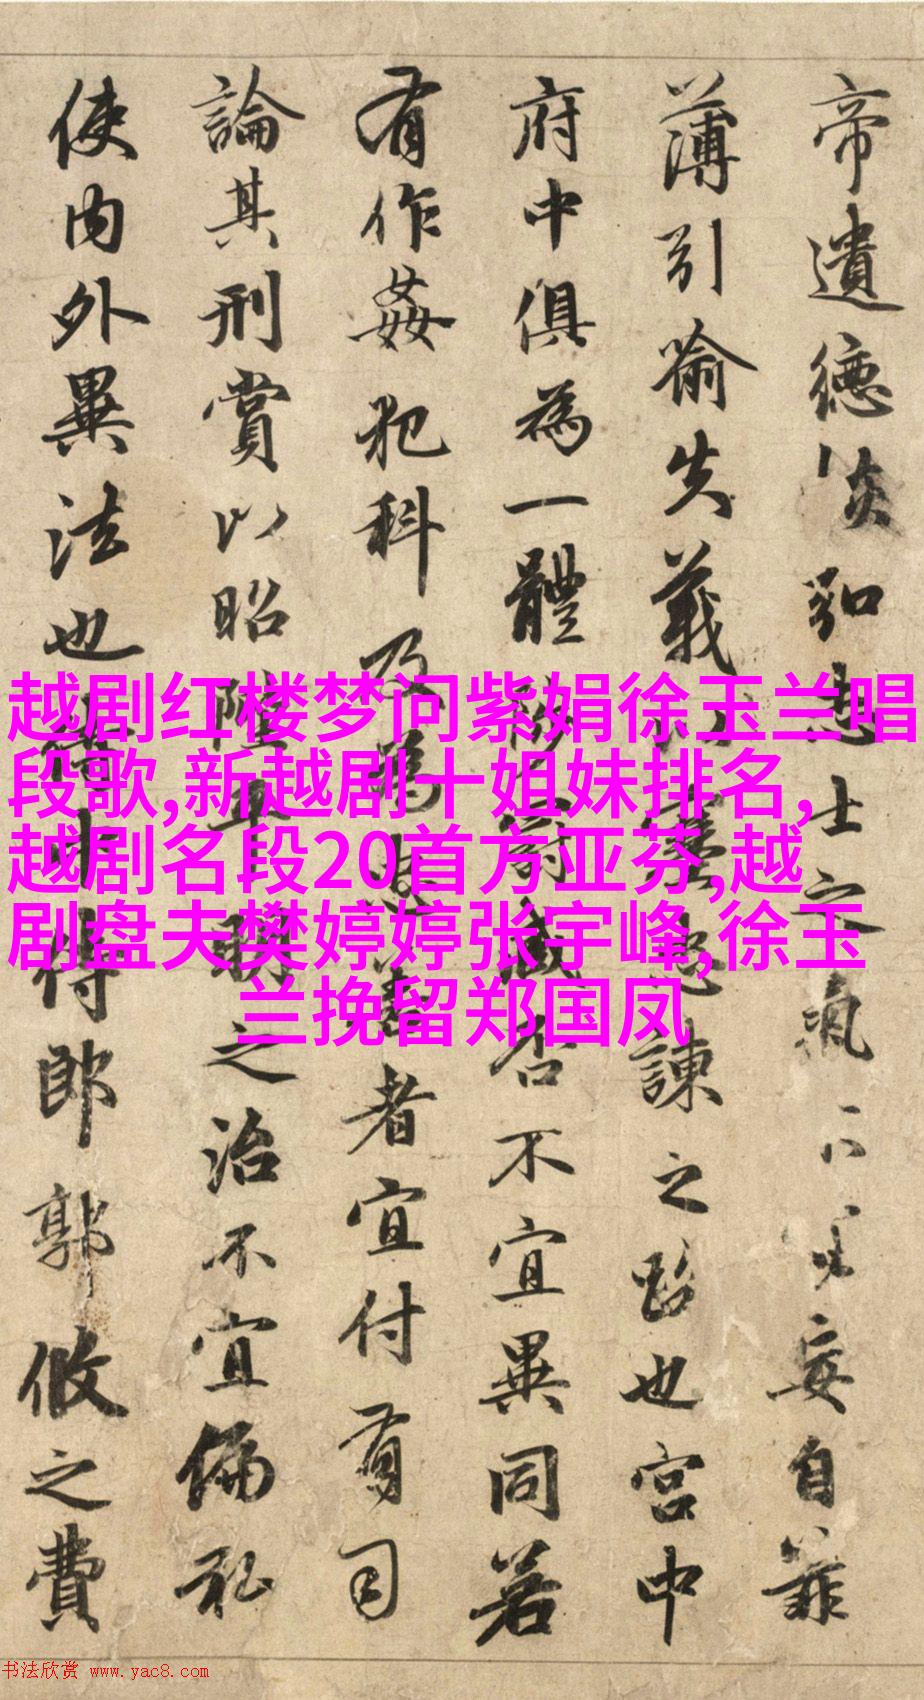 帝遺德恢弘志士之氣不宜妄自菲
薄引喻失義以塞忠諫之路也宮中
府中俱為一體陟罰臧否不宜異同若
有作姦犯科及為忠善者宜付有司
論其刑賞以昭陛平明之治不宜偏私
使內外異法也侍中侍郎郭攸之費
越剧红楼梦问紫娟徐玉兰唱
段歌,新越剧十姐妹排名,
越剧名段20首方亚芬,越
剧盘夫樊婷婷张宇峰,徐玉
兰挽留郑国凤
书法欣赏 www.yac8.com